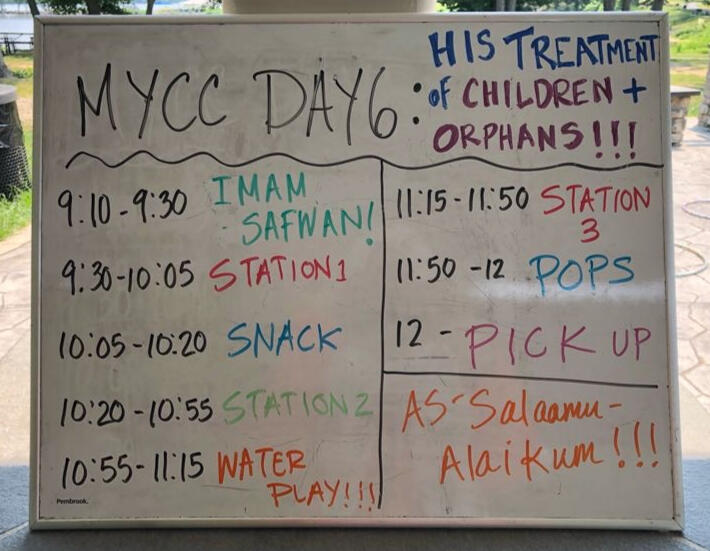 MYCC DAY 6: HIS TREATMENT
of CHILDREN +
ORPHANS!!!
9:10-9:30 IMAM
SAFWAN!
9:30-10:05 STATION 1
10:05-10:20 SNACK
10:20-10:55 STATION 2
10:55-11:15 WATER
PLAY!!!
11:15-11:50 STATION
3
11:50-12 POPS
12 - PICK UP
AS-Salaamu-
Alaikum!!!
Pembrook.